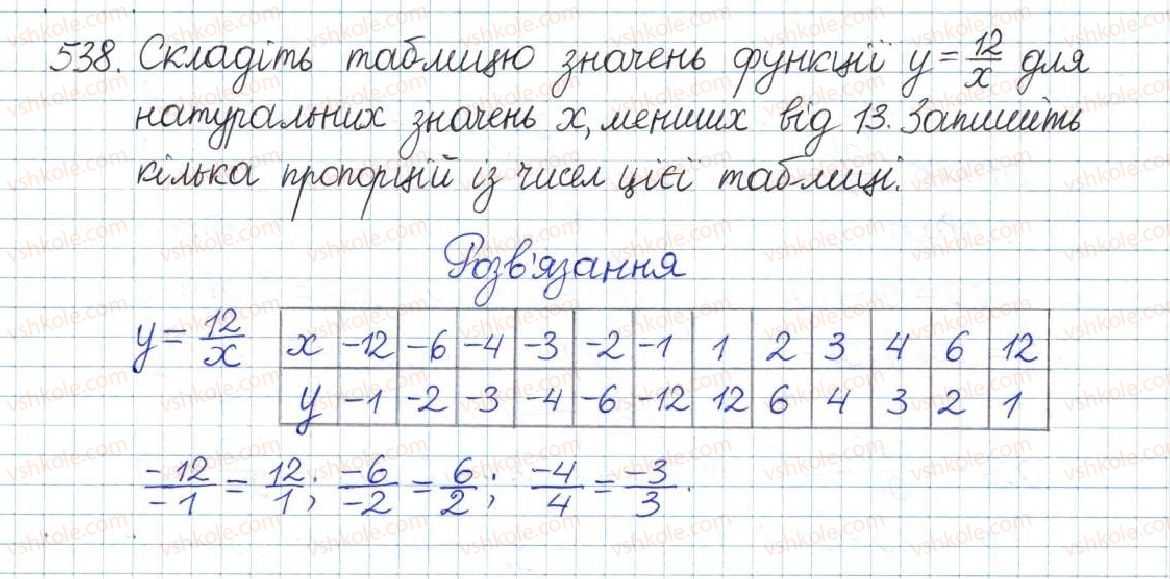 538. Складіть таблицю значень функції y = 12/x для
натуральних значень x, менших від 13. Запишіть
кілька пропорцій із чисел цієї таблиці.
Розв'язання
y = 12/x
x -12 -6 -4 -3 -2 -1 1 2 3 4 6 12
y -1 -2 -3 -4 -6 -12 12 6 4 3 2 1
-12/-1 = 12/1; -6/-2 = 6/2; -4/4 = -3/3.
vshkole.com